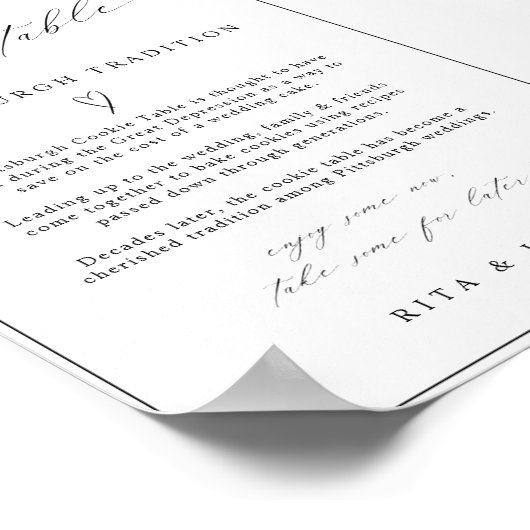 table
URGH TRADITION
sburgh Cookie Table is thought to have
during the Great Depression as a way to
save on the cost of a wedding cake.
Leading up to the wedding, family & friends
come together to bake cookies using recipes
passed down through generations.
Decades later, the cookie table has become a
cherished tradition among Pittsburgh weddings.
enjoy some now,
take some for later
RITA &